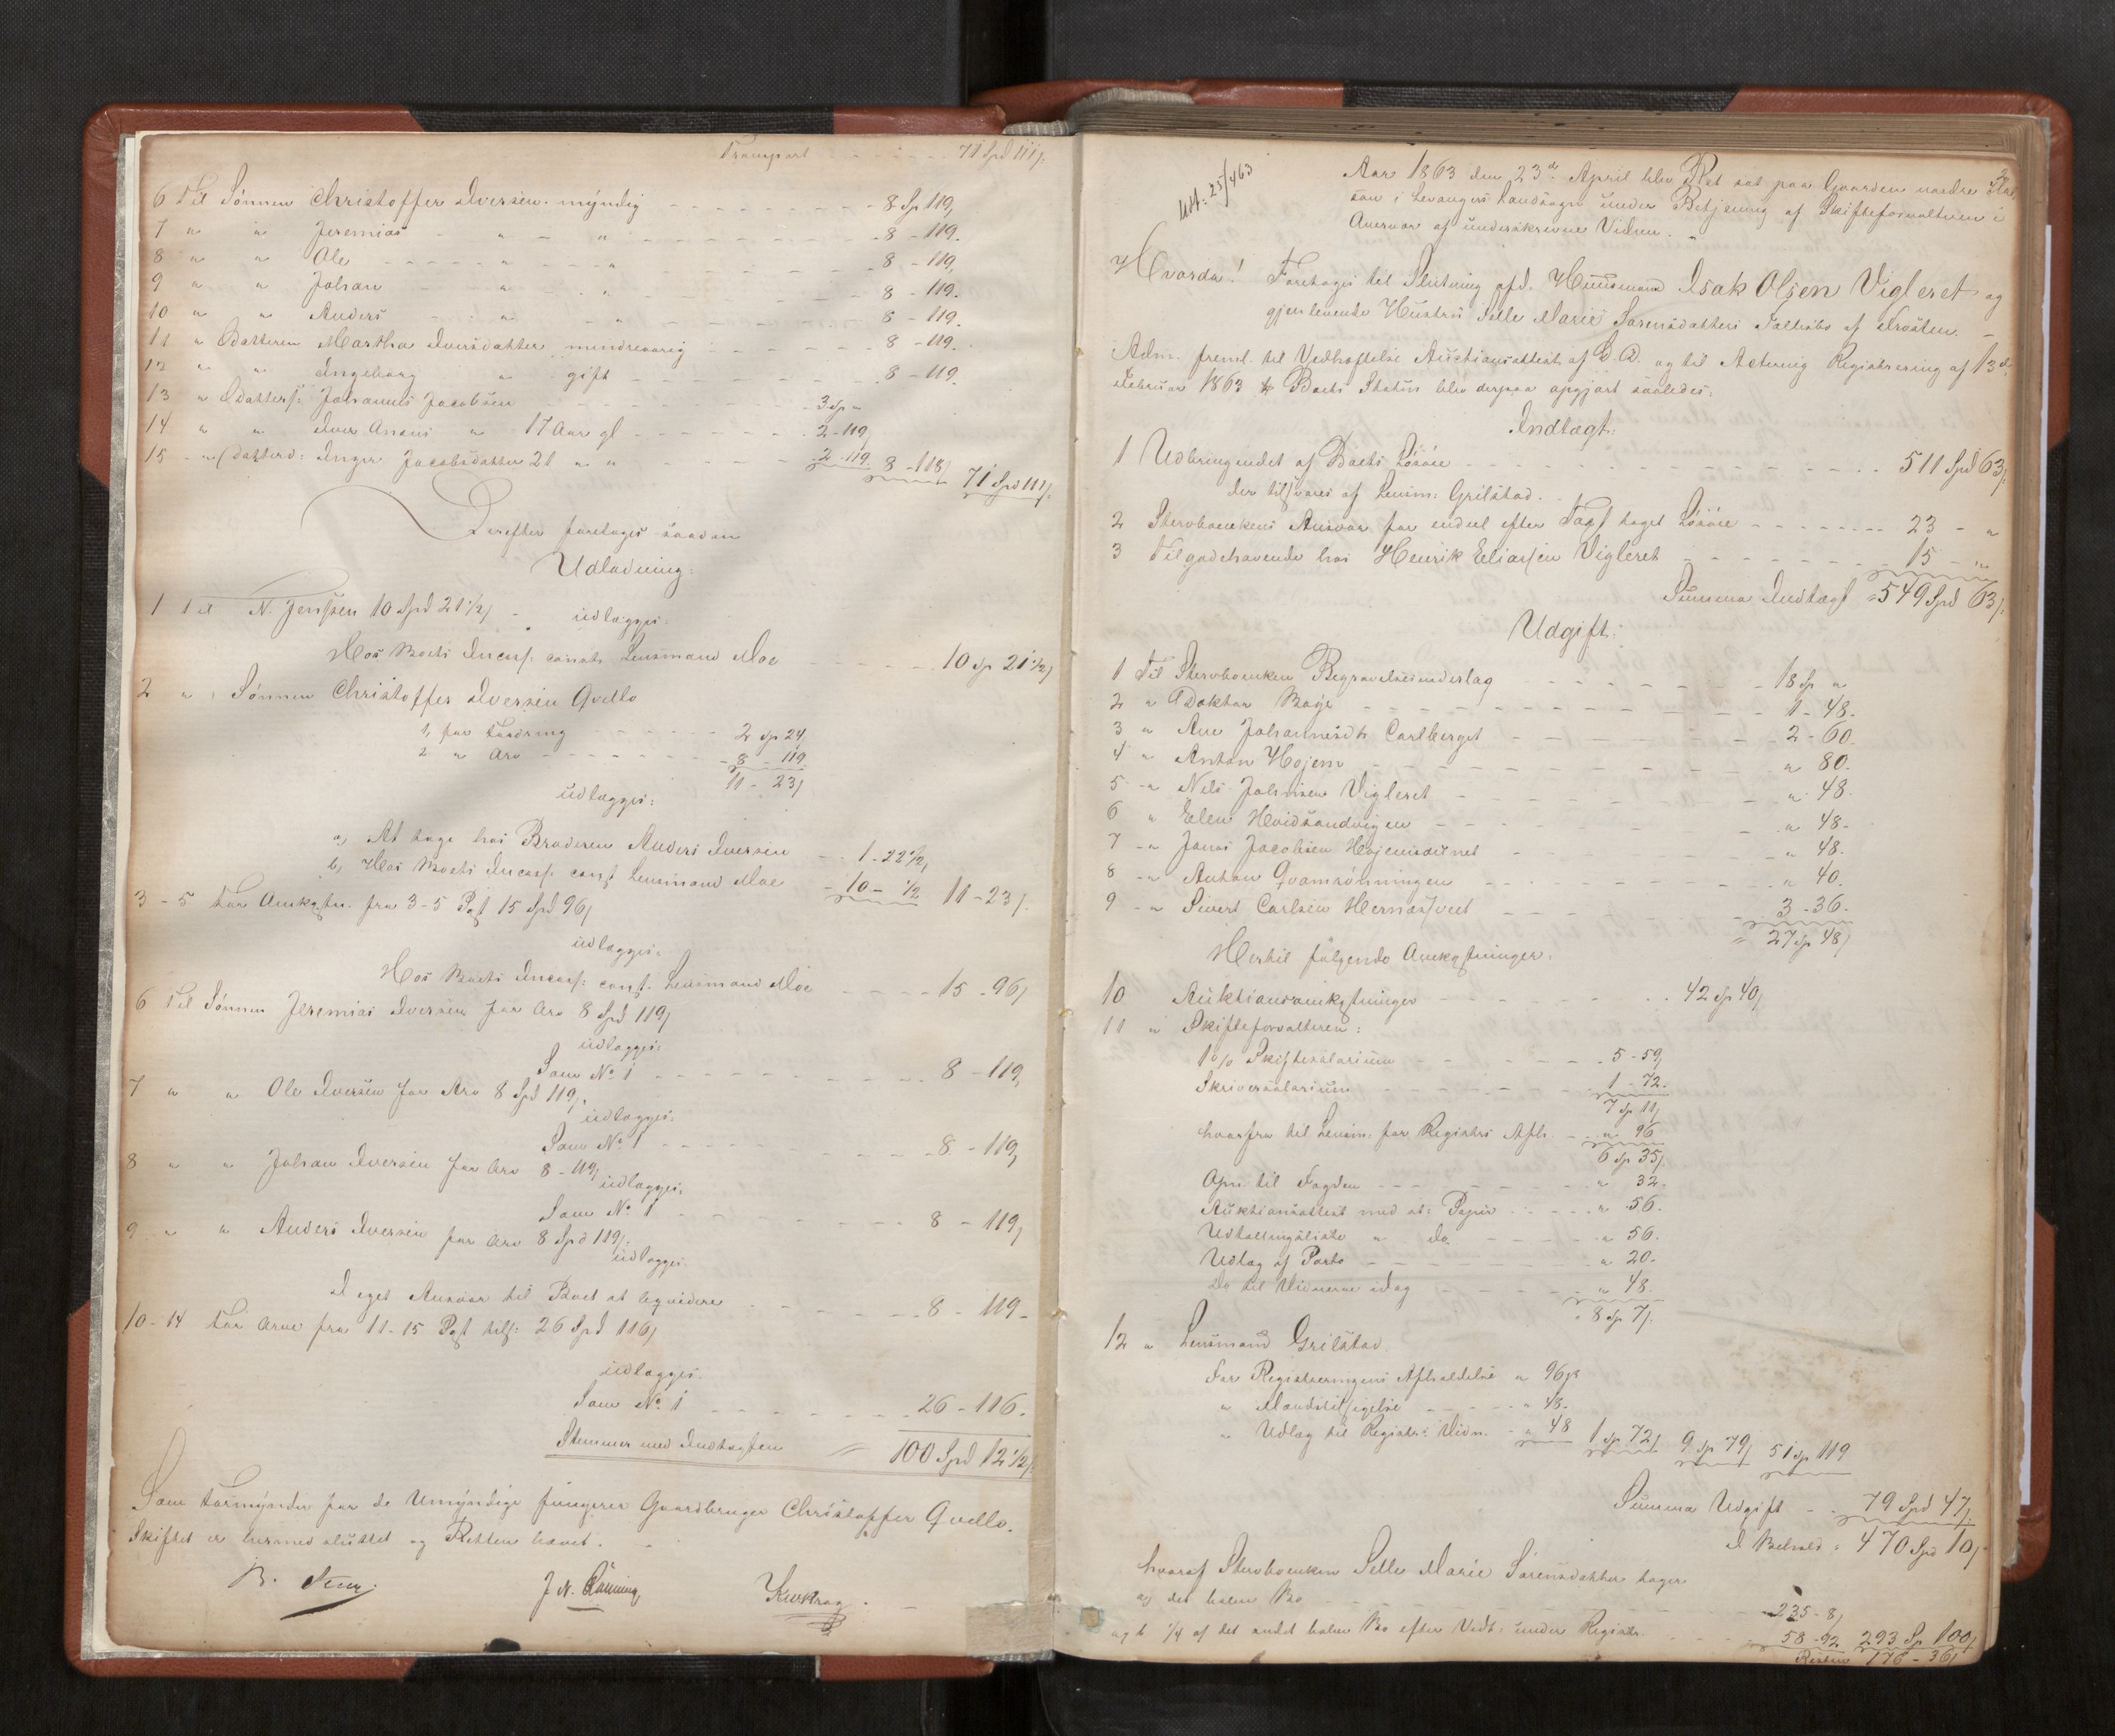 Transport - - - - - - 71 Spd 111/.
6 Til Sønnen Christoffer Iversen - myndig - - - - - - - 8 Sp 119,
7 " " Jeremias - " - " - - - - - - 8 - 119.
8 " " Ole - - - - - " - - - " - - - - - 8 - 119,
9 " " Johan - - " - - " - - - - - 8 - 119.
10 " " Anders - - " - - " - - - - - 8 - 119.
11 " Datteren Martha Iversdatter mindreaarig - - - - - 8 - 119.
12 " " Ingeborg " gift - - - - - - 8 - 119.
13 " Datters: Johannes Jacobsen - - - - - 3 Sp "
14 " " Iver Anneus " 17 Aar gl - - - - - 2 - 119,
15 - " Datterd: Inger Jacobsdatter 21 " " - - - - 2 - 119. 8 - 118/ 71 Spd 111/.
Derefter foretoges saadan
Udlodning:
1 Til N. Jenssen 10 Spd 21 1/2/ - udlægges:
Hos Boets Incass. const. Lensmand Moe - - - - - 10 Sp 21 1/2/
2 " Sønnen Christoffer Iversen Qvello
1, for Fordring - - - - - 2 Sp 24,
2 " Arv - - - - - - - 8 - 119.
11 - 23/
udlægges:
a, At tage hos Broderen Anders Iversen - - 1 - 22 1/2,
b, Hos Boets Incass. const Lensmand Moe - 10 - 1/2 11 - 23/.
3 - 5 For Omkostn. fra 3-5 Post 15 Spd 96/
udlægges:
Hos Boets Incass: const. Lensmand Moe - - - - 15 - 96/
6 Til Sønnen Jeremias Iversen for Arv 8 Spd 119/
udlægges:
Som No 1 - - - - - - - - - 8 - 119,
7 " " Ole Iversen for Arv 8 Spd 119/.
udlægges:
Som No 1 - - - - - - - - - 8 - 119,
8 " " Johan Iversen for Arv 8 - 119/
udlægges:
Som No 1 - - - - - - - - - 8 - 119,
9 " " Anders Iversen for Arv 8 Spd 119/.
udlægges
I eget Ansvar til Boet at liqvidere - - - - - 8 - 119 -
10 - 14 For Arve fra 11-15 Post tils: 26 Spd 116/
udlægges.
Som No 1 - - - - - - - 26 - 116.
Stemmer med Indtægten = 100 Spd 12 1/2/.
Som Formynder for de Umyndige fungerer Gaardbruger Christoffer Qvello.
Skiftet er hermed sluttet og Retten hævet. -
Aar 1863 den 23de April blev Ret sat paa Gaarden nordre
i Levangers Landsogn under Betjening af Skifteforvalteren i
Overvær af underskrevne Vidner. -
Hvorda! Foretoges til Slutning afd. Huusmand Isak Olsen Vigleret og
gjenlevende Hustru Marie Sørensdatters Fællesbo af Frosten. -
Adm. freml. til Vedhæftelse Auctionsattest af D. D. og til Actering Registrering af 13de
Februar 1863 Boets Status blev derpaa opgjort saaledes:
Indtægt:
1 Udbringendet af Boets Løsøre - - - - - - - - - 511 Spd 63/.
der tilsvares af Lensm: Grilstad. -
2 Sterboenkens Ansvar for endeel efter Taxt taget Løsøre - - - - - - - 23 - "
3 Tilgodehavende hos Henrik Eliassen Vigleret - - - - - - - 15 - "
Summa Indtægt = 549 Spd 63/.
Udgift:
1 Til Sterboenken Begravelsesudlæg - - - - - - - 18 Sp "
2 " Doktor - - - - - - - - - - 1 - 48 -
3 " Ane Johannesdtr Carlberget - - - - - - 2 - 60 -
4 " Anton Hojem - - - - - - - - " 80.
5 " Nils Johnsen Vigleret - - - - - - " 48 -
6 " Elen Hvidsandvigen - - - - - - " 48 -
7 " Jonas Jacobsen - - - - - " 48 -
8 " Anton Qvamrønningen - - - - - - " 40.
9 " Sivert Carlsen - - - - - - 3 - 36 -
= 27 Sp 48/
Hertil følgende Omkostninger:
10 Auktionsomkostninger - - - - - - - 42 Sp 40/
11 " Skifteforvalteren:
1% Skiftesalarium - - - - - 5 - 59,
Skriversalarium - - - - - 1 - 72.
7 Sp 11/
hvorfra til Lensm: for Registrs Afh. - - " 96
6 Sp 35/.
Opn. til Fogden - - - - - " 32.
Auktionsattest med st: Papir - - - - " 56.
Udtallingsliste " do - - - - " 56.
Udlæg af Porto - - - - - - " 20.
Do til Vidnerne idag - - - - " 48.
8 Sp 7/.
12 " Lensmand Grilstad
For Registreringens Afholdelse " 96 ß
" Mandstilsigelse - - - - " 48 -
" Udlæg til Registr: Vidn. - " 48 1 Sp 72/ 9 Sp 79/ 51 Sp 119
Summa Udgift - - 79 Spd 47/.
I Behold = 470 Spd 16/.
hvoraf Sterboenken Marie Sørensdatter tager
a, det halve Bo - - - - - - - - - 235 - 8/
og b 1/4 af det andet halve Bo efter Vedt: under Registr. - - - 58 - 92 293 Sp 100/
Resten 176 - 36/